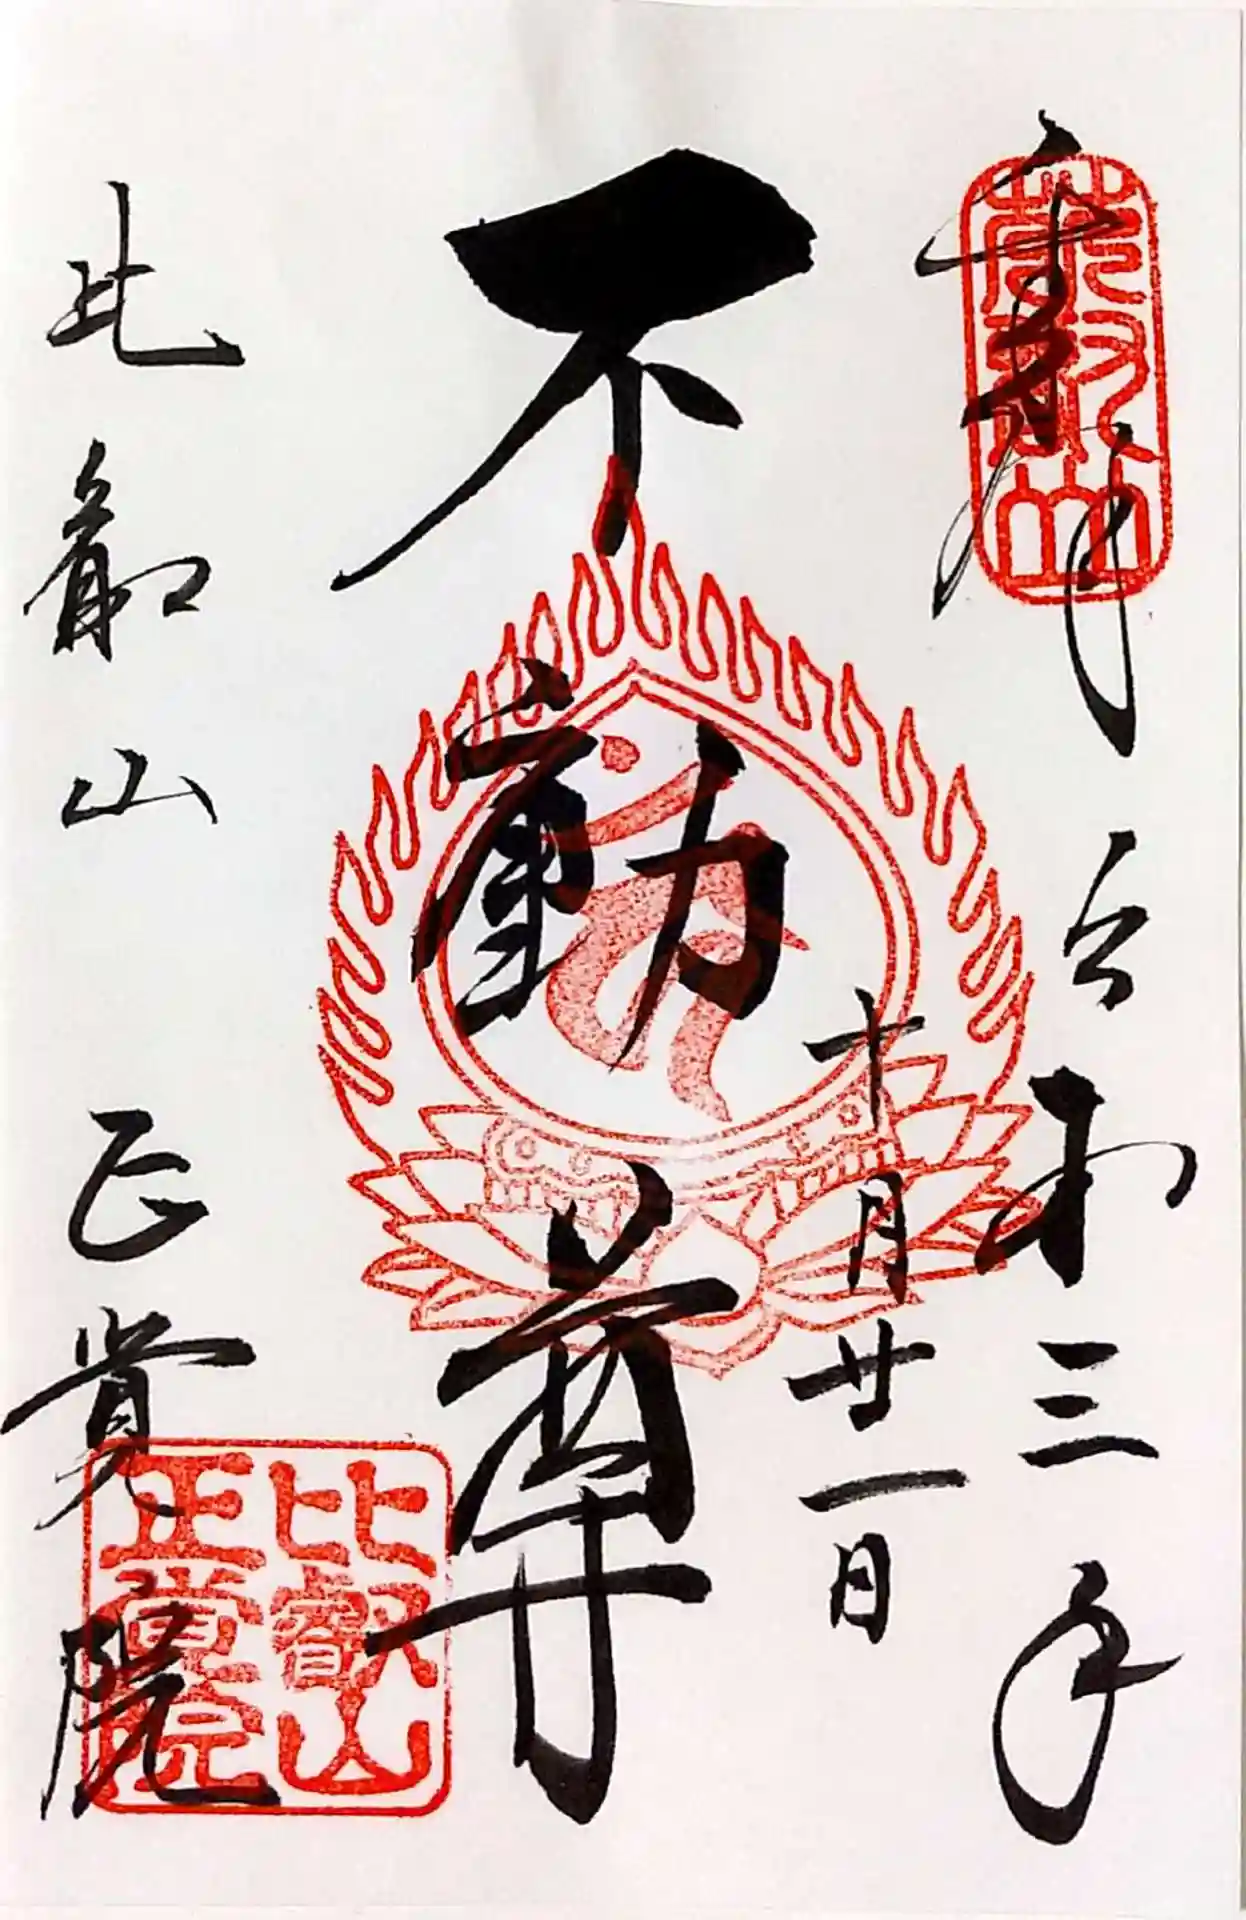 奉拝 令和三年
十月廿一日
不動尊
比叡山 正覚院
比叡山
正覺院